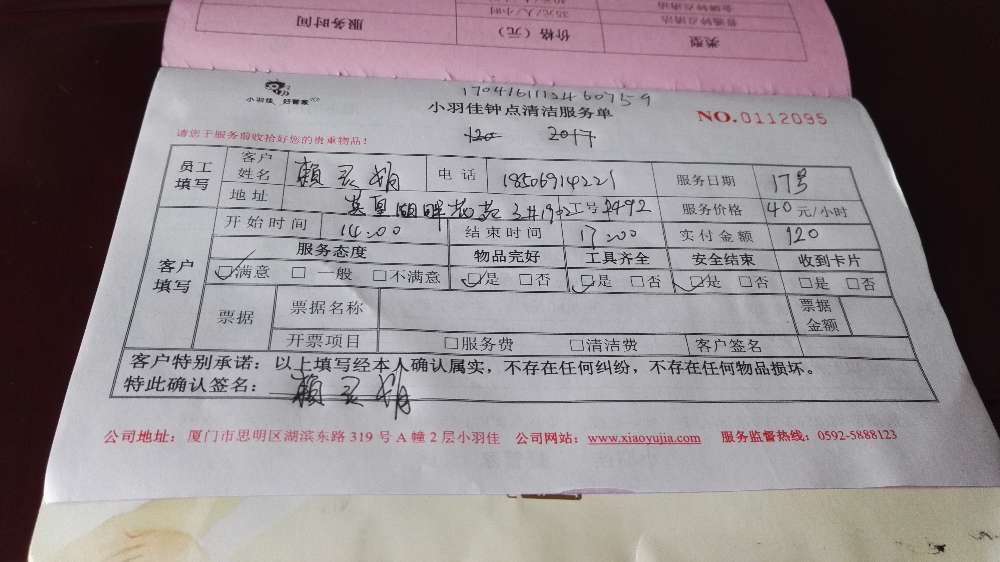 服务时间 价格（元） 类型
35元/人/小时 普通钟点清洁
17041611123460759
小羽佳 好管家
小羽佳钟点清洁服务单
NO.0112095
120 2017
请您于服务前收拾好您的贵重物品！
员工填写 客户姓名 賴 电话 18506914221 服务日期 17号
地址 湖畔花苑 工号 服务价格 40元/小时
开始时间 14:00 结束时间 17:00 实付金额 120
客户填写 服务态度 物品完好 工具齐全 安全结束 收到卡片
☑满意 □一般 □不满意 ☑是 □否 ☑是 □否 ☑是 □否 □是 □否
票据 票据名称 票据金额
开票项目 □服务费 □清洁费 客户签名
客户特别承诺：以上填写经本人确认属实，不存在任何纠纷，不存在任何物品损坏。
特此确认签名： 賴
公司地址：厦门市思明区湖滨东路 319 号 A 幢 2 层小羽佳 公司网站：www.xiaoyujia.com 服务监督热线：0592-5888123